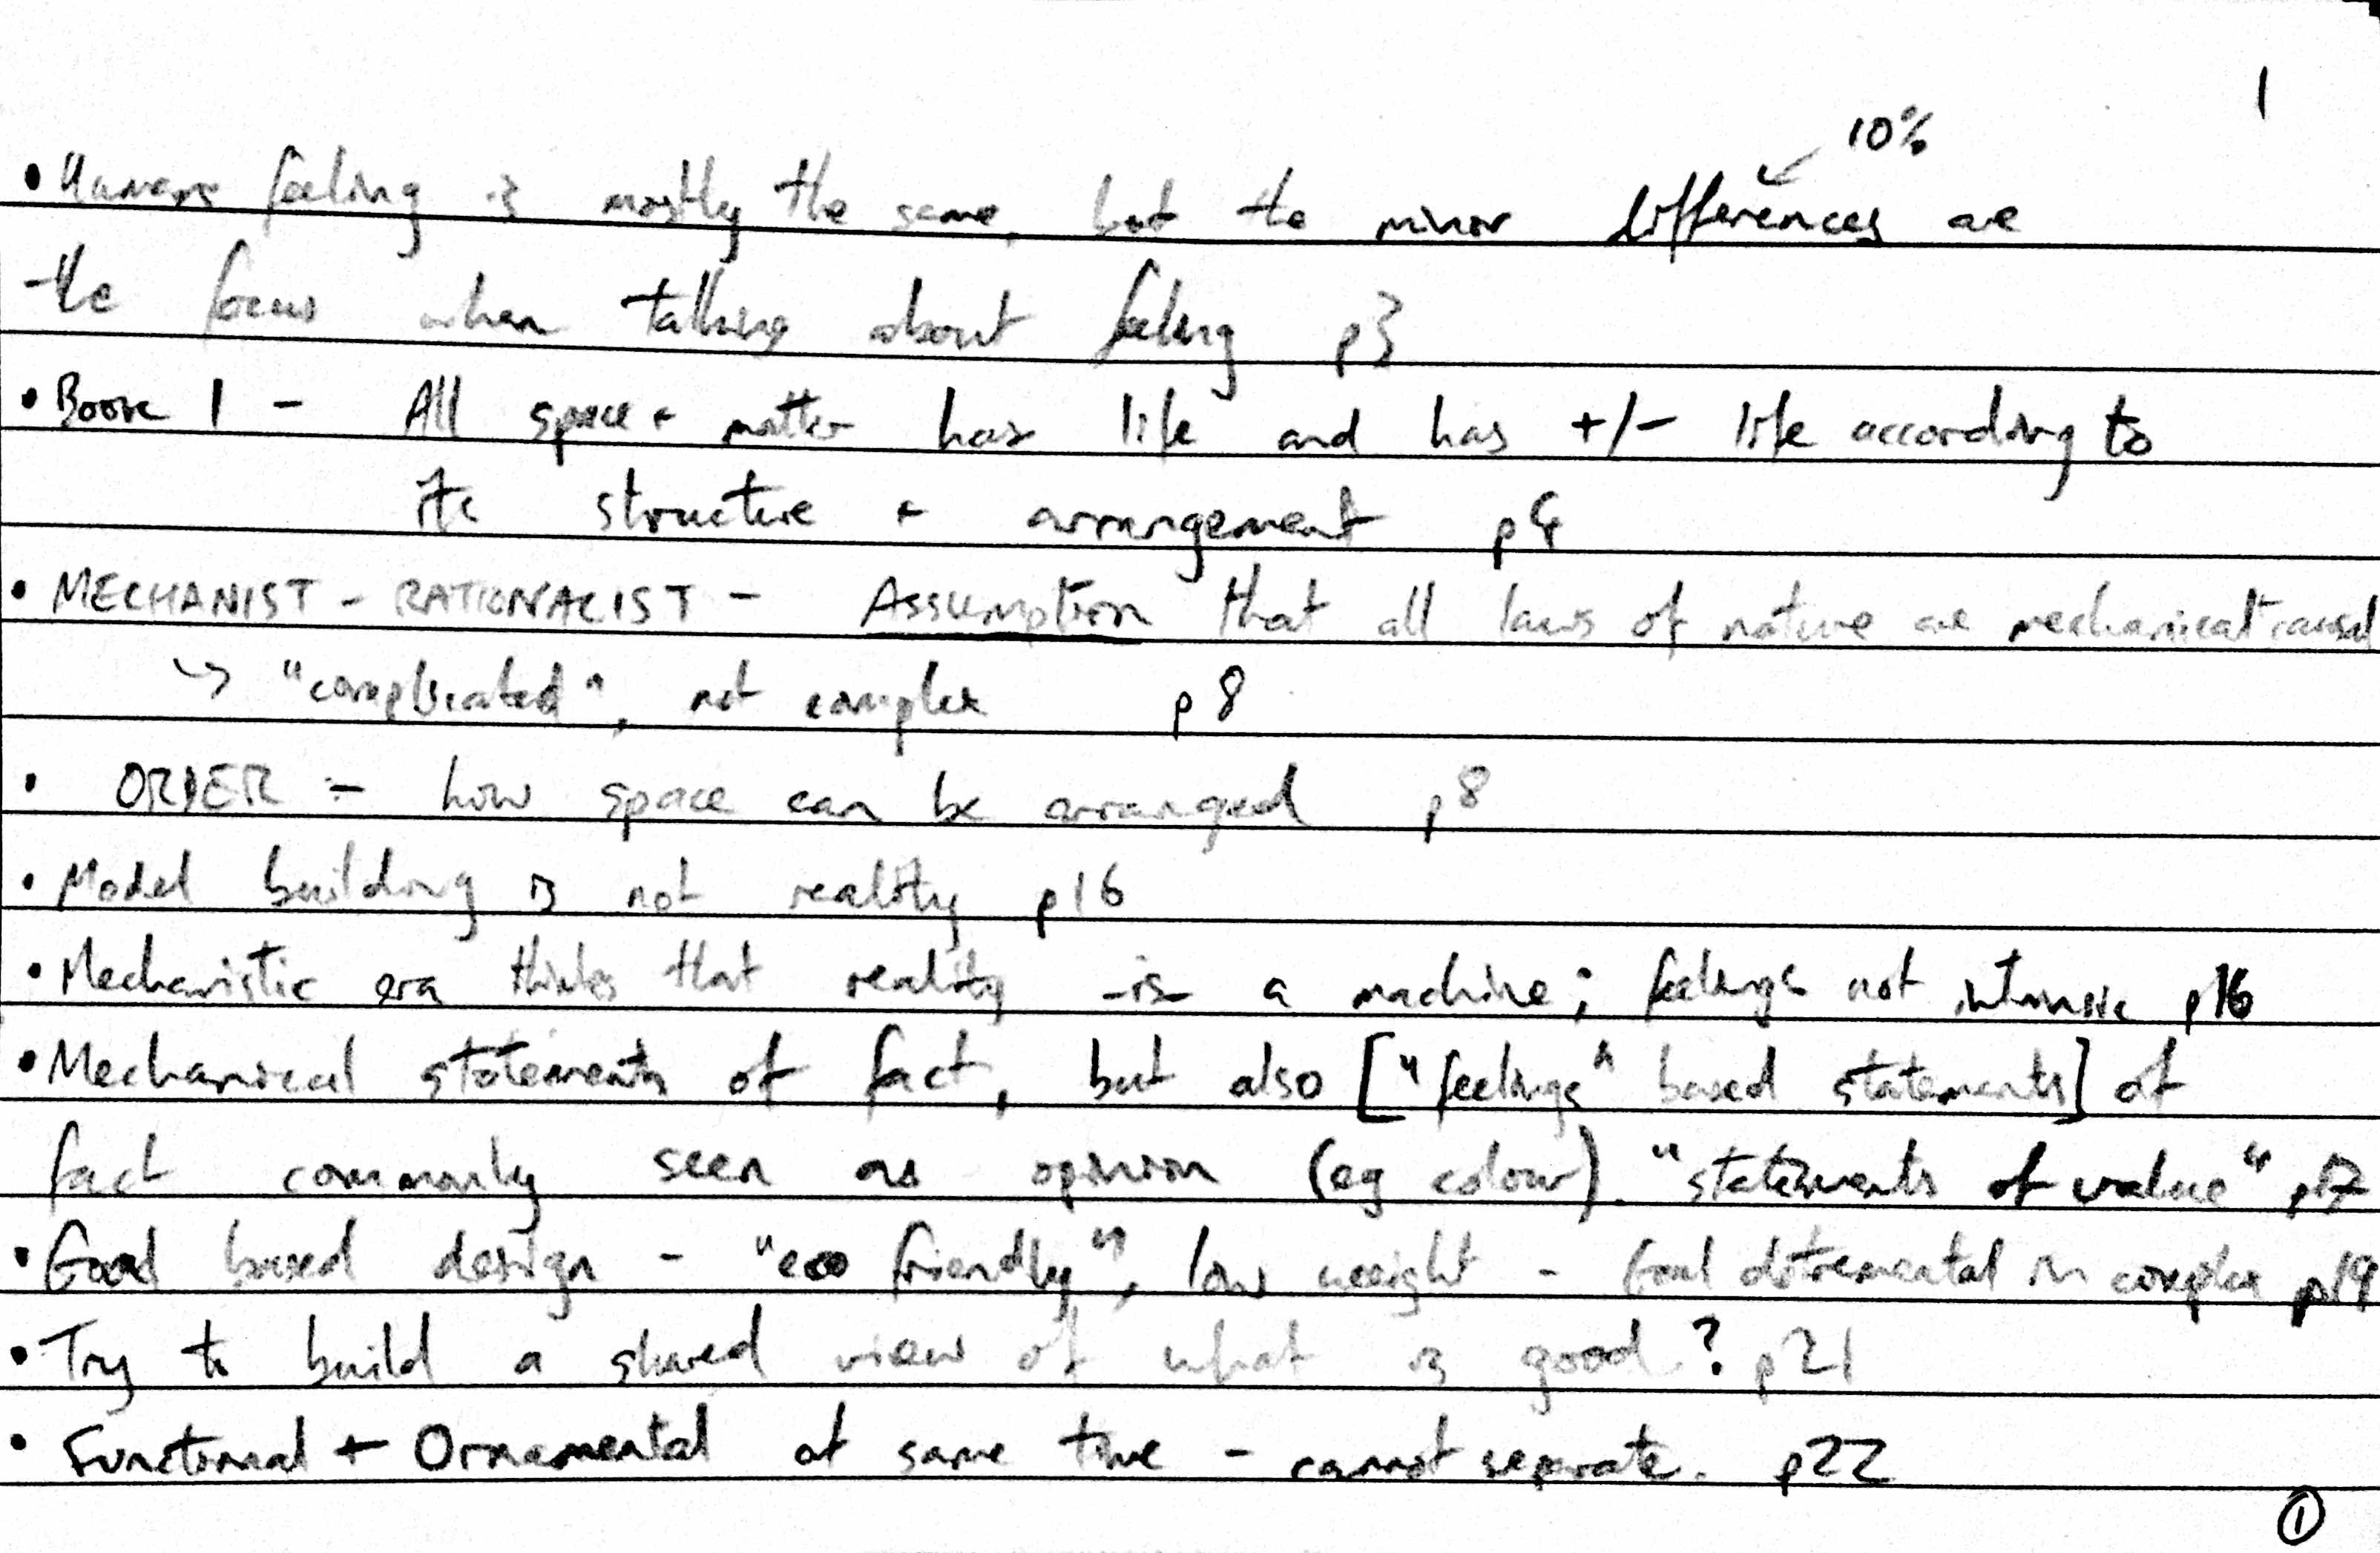 1
10%
• Human feeling is mostly the same, but the minor differences are
the focus when talking about feeling p3
• Book 1 - All space + matter has life and has +/- life according to
its structure + arrangement p4
• MECHANIST - RATIONALIST - Assumption that all laws of nature are mechanical + causal
↳ "complicated", not complex p8
• ORDER - how space can be arranged p8
• Model building is not reality p16
• Mechanistic era thinks that reality -is- a machine; feelings not intrinsic p16
• Mechanical statements of fact, but also ["feelings" based statements] of
fact commonly seen as opinion (eg colour). "statements of value" p17
• Goal based design - "eco friendly", low weight - Goal detremental in complex p19
• Try to build a shared view of what is good? p21
• Functional + Ornamental at same time - cannot separate. p22
①